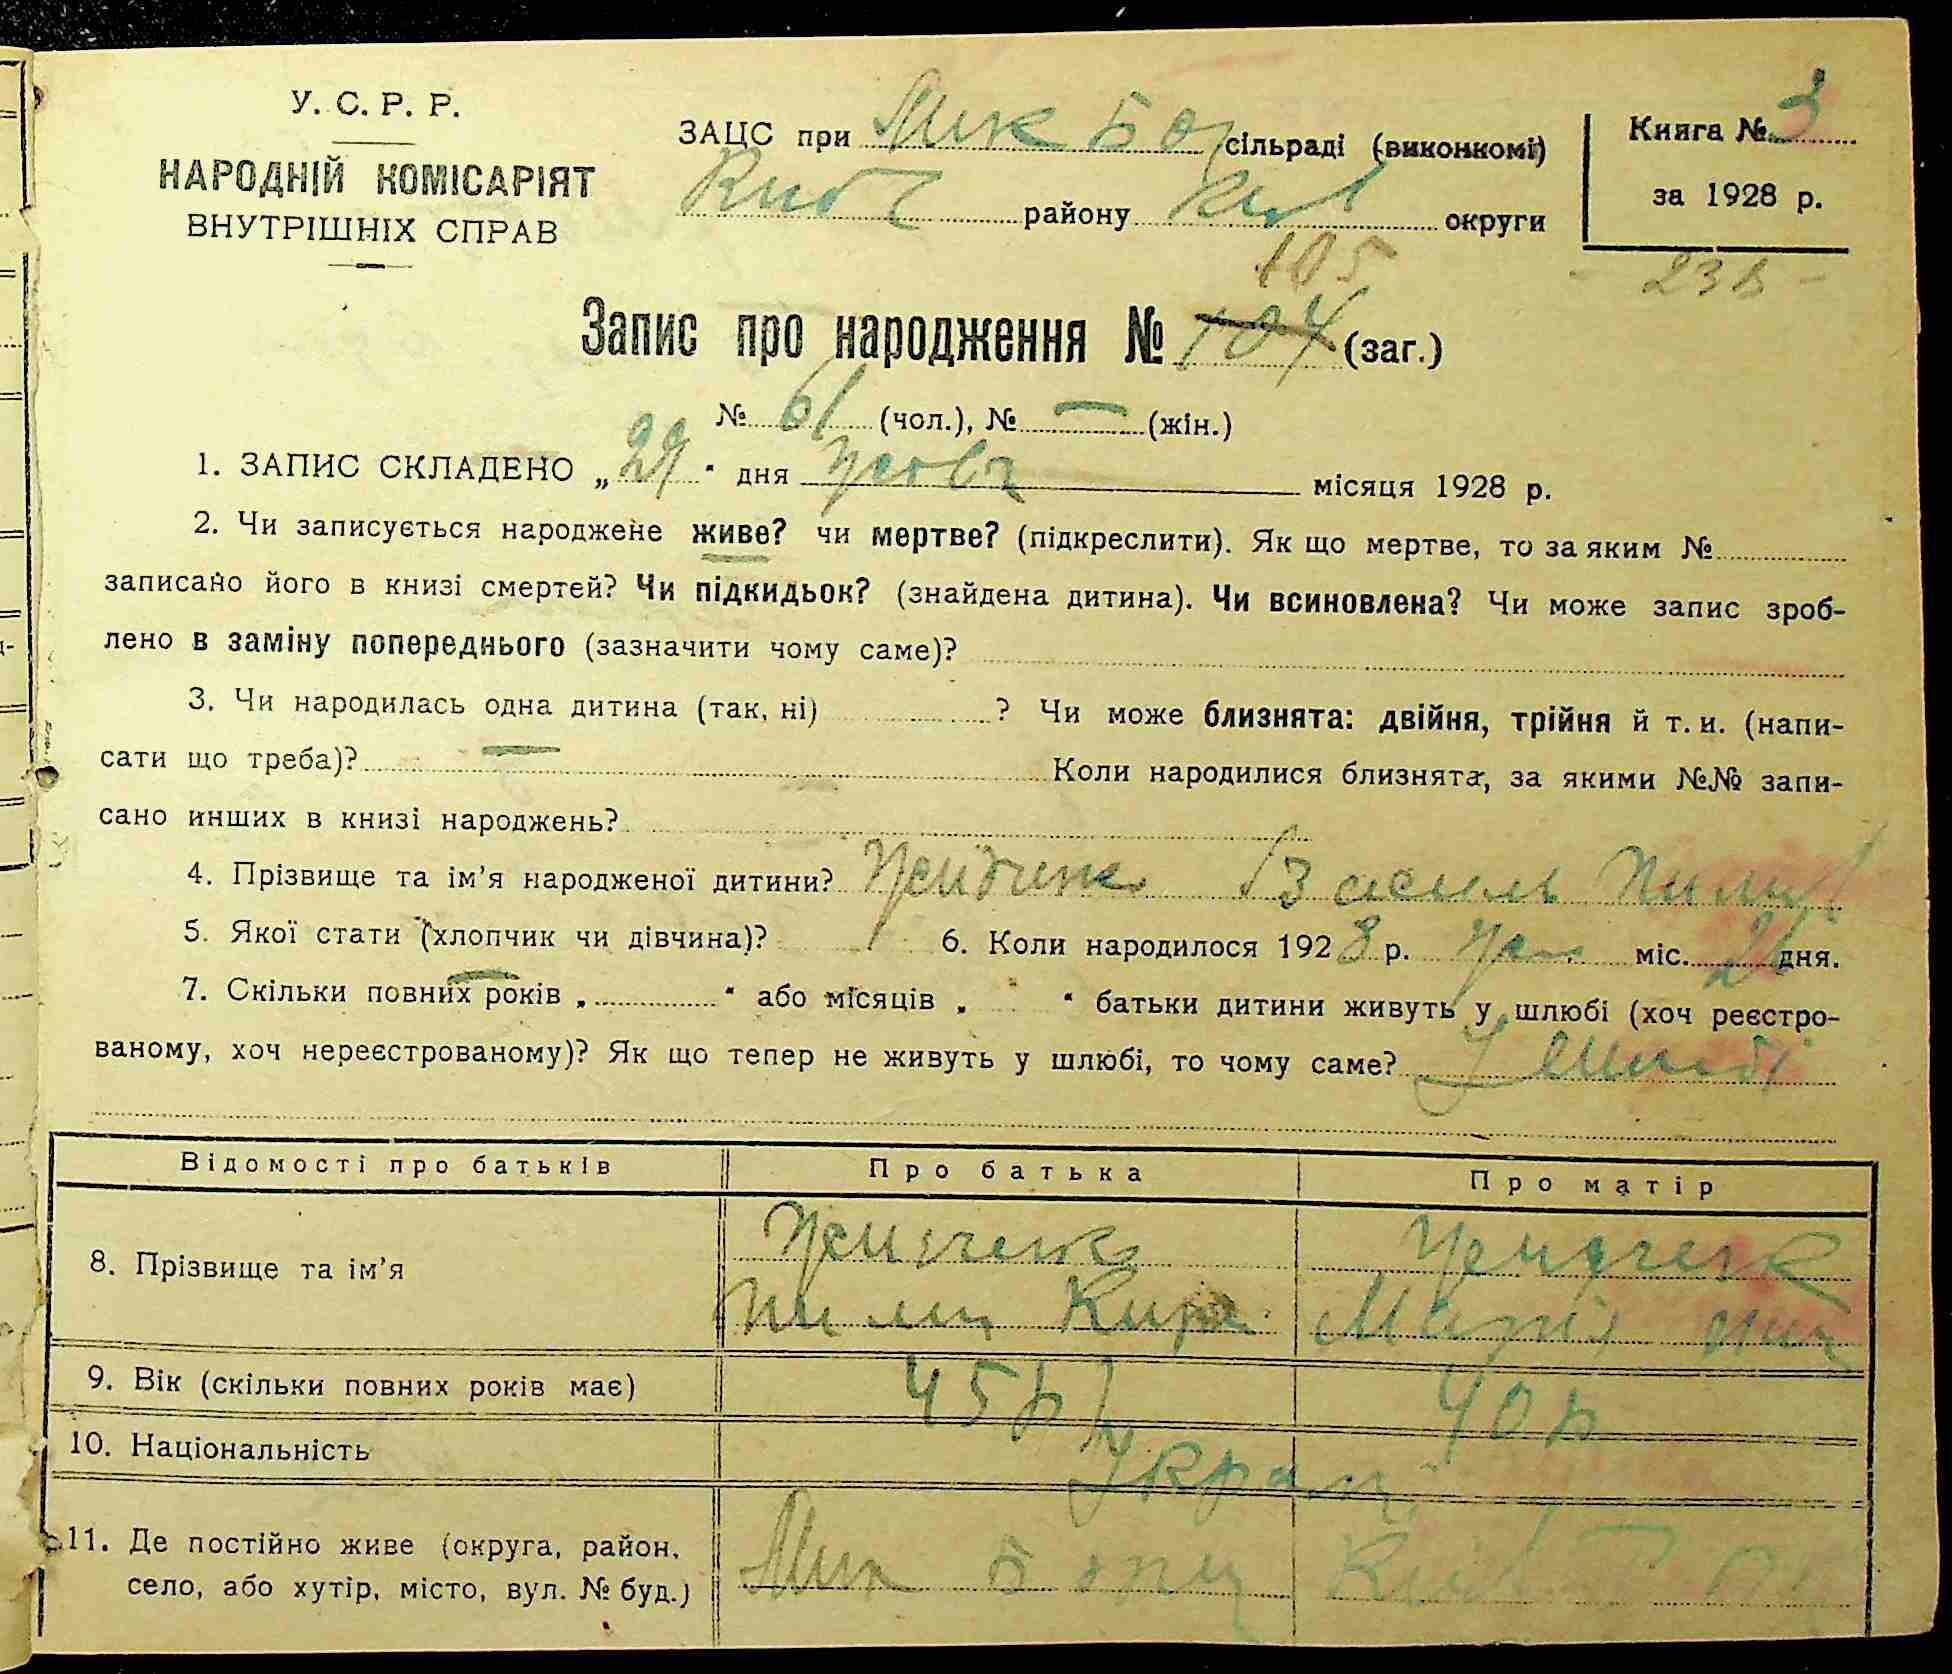 У. С. Р. Р.
НАРОДНІЙ КОМІСАРІЯТ
ВНУТРІШНІХ СПРАВ
ЗАЦС при Мик Бор сільраді (виконкомі)
района Київ округи
Книга № 3
за 1928 р.
105
- 23 в -
Запис про народження № 104 (заг.)
№ 61 (чол.), № — (жін.)
1. ЗАПИС СКЛАДЕНО „29" дня місяця 1928 р.
2. Чи записується народжене живе? чи мертве? (підкреслити). Як що мертве, то за яким №
записано його в книзі смертей? Чи підкидьок? (знайдена дитина). Чи всиновлена? Чи може запис зроб-
лено в заміну попереднього (зазначити чому саме)?
3. Чи народилась одна дитина (так, ні) ? Чи може близнята: двійня, трійня й т. и. (напи-
сати що треба)? Коли народилися близнята, за якими №№ запи-
сано инших в книзі народжень?
4. Прізвище та ім'я народженої дитини? Василь Пилип
5. Якої стати (хлопчик чи дівчина)? 6. Коли народилося 1928 р. міс. 26 дня.
7. Скільки повних років „ " або місяців „ " батьки дитини живуть у шлюбі (хоч реєстро-
ваному, хоч нереєстрованому)? Як що тепер не живуть у шлюбі, то чому саме? У шлюбі
Відомості про батьків Про батька Про матір
8. Прізвище та ім'я
Пилип Кир Марія
9. Вік (скільки повних років має) 45 р 40 р
10. Національність Україн
11. Де постійно живе (округа, район, село, або хутір, місто, вул. № буд.) Мик Борщ Київ